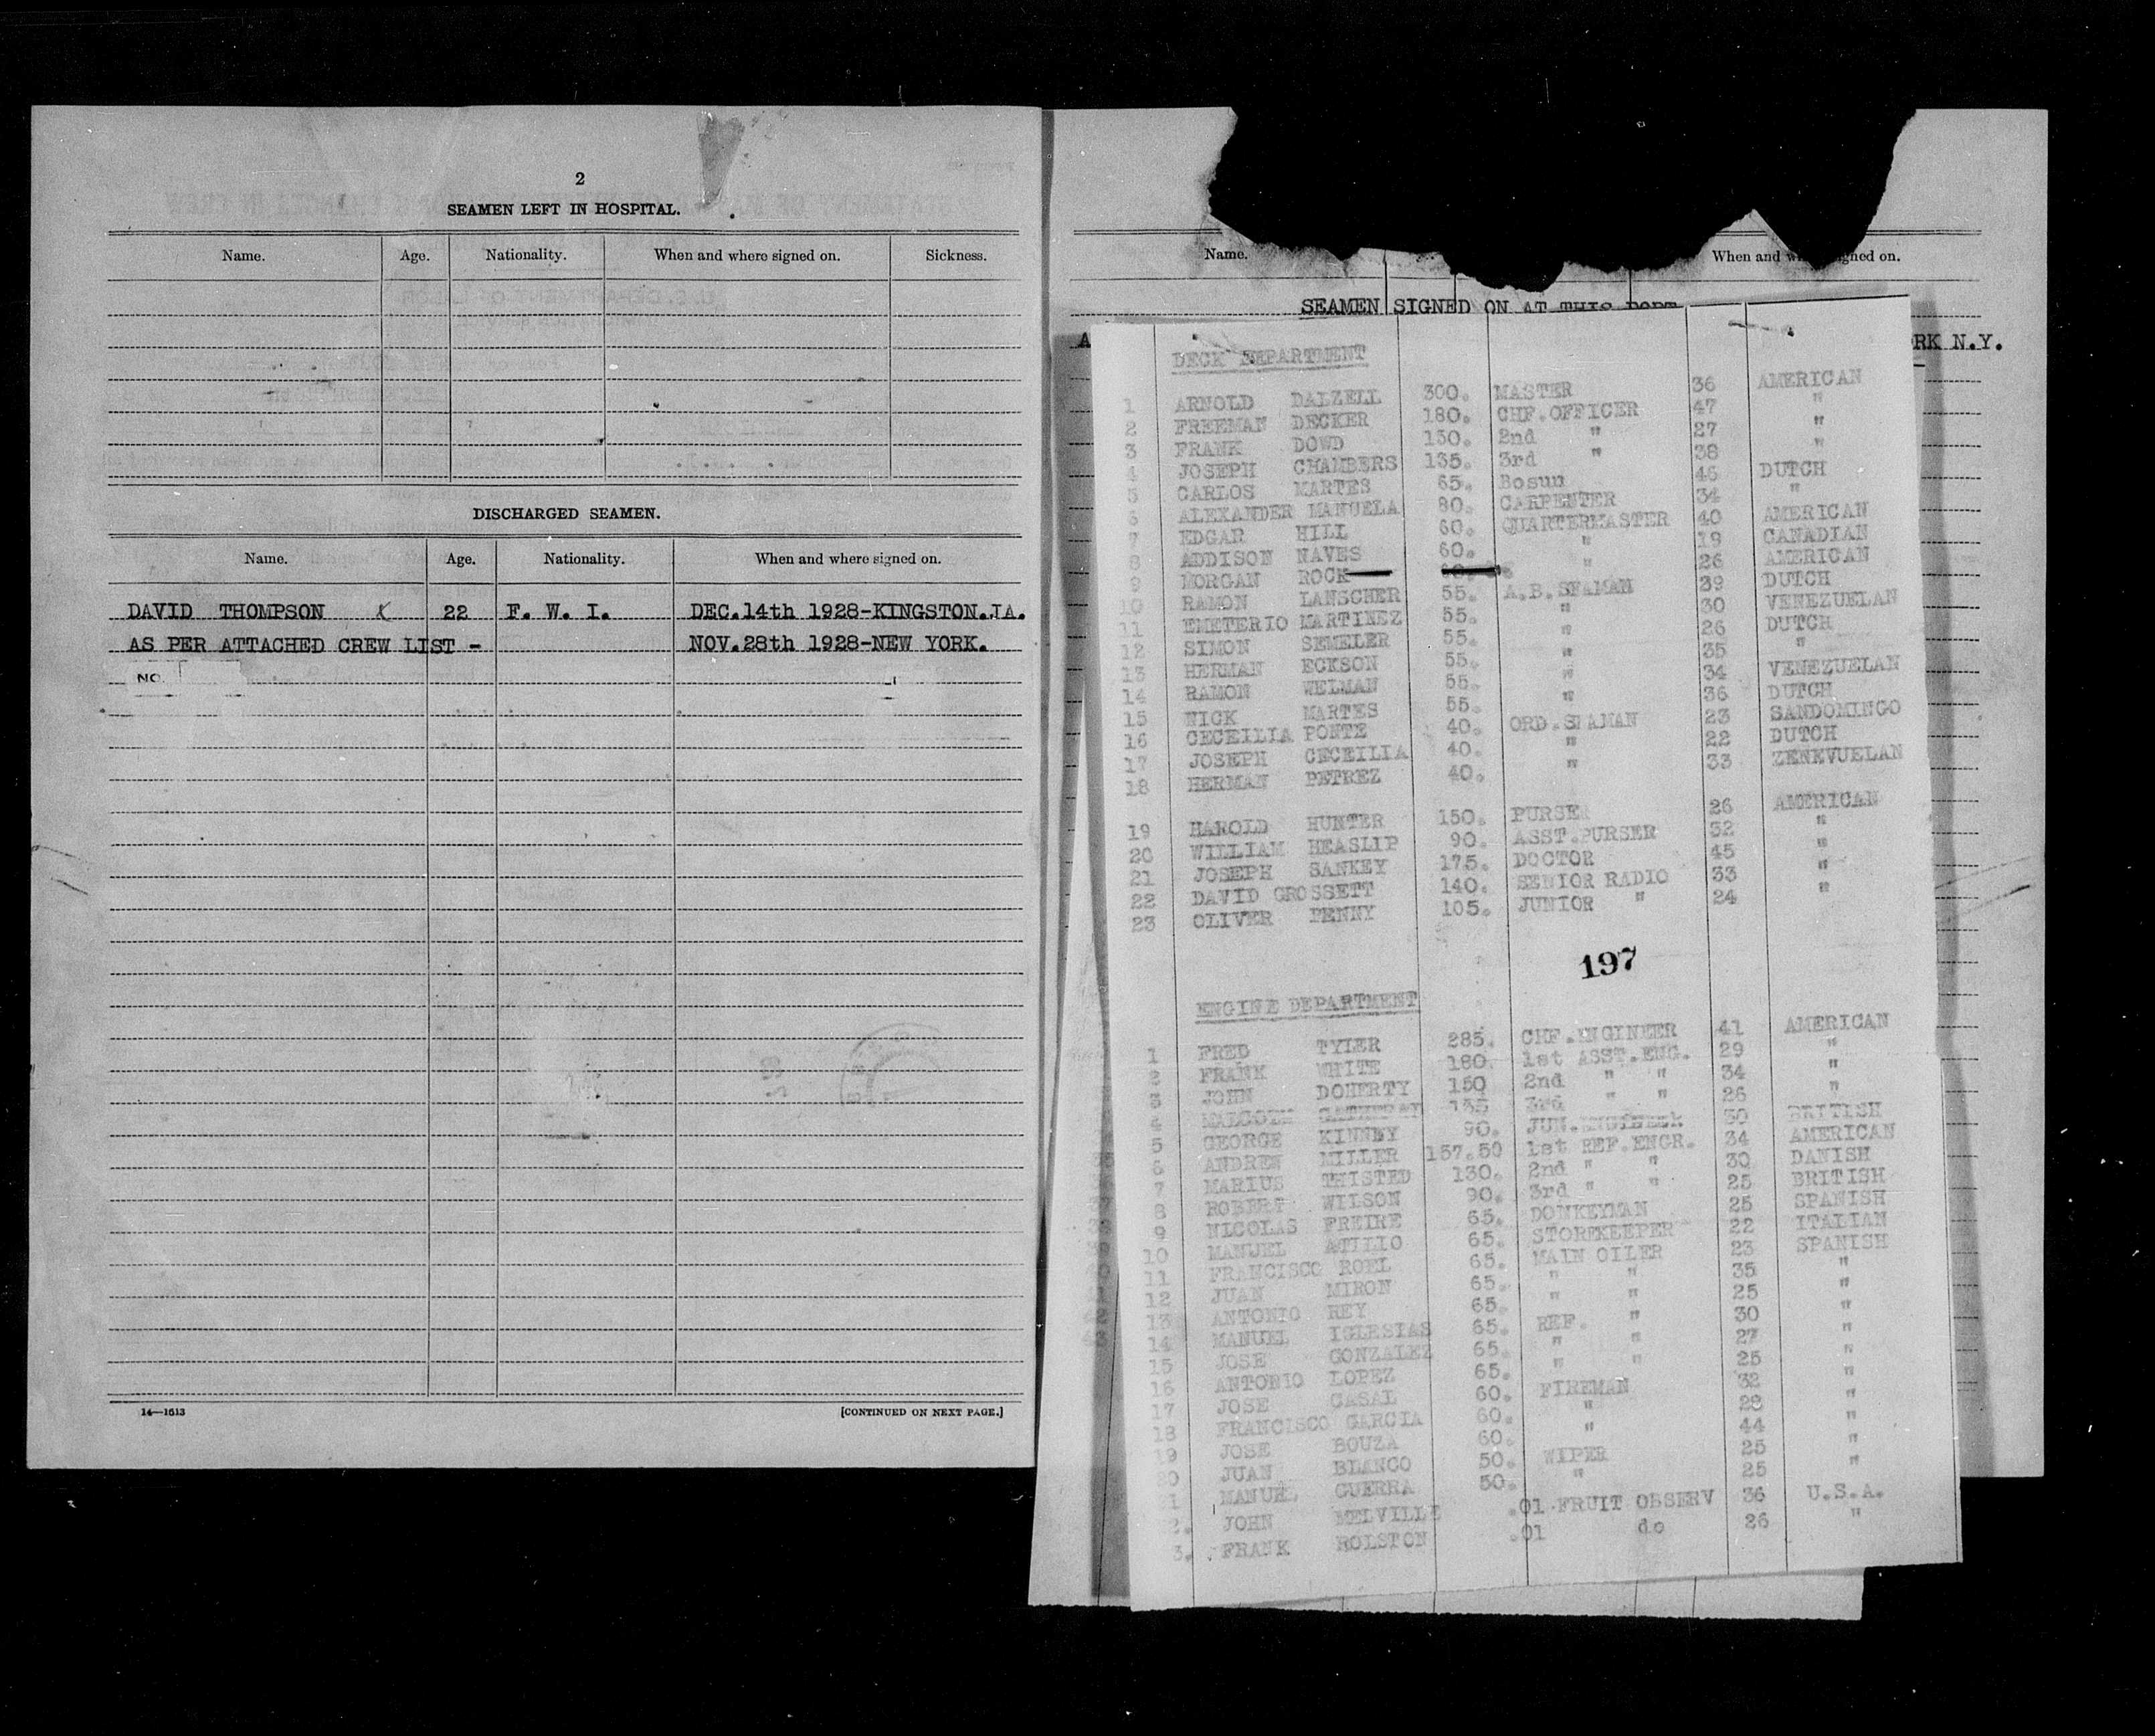 2
SEAMEN LEFT IN HOSPITAL.
Name. Age. Nationality. When and where signed on. Sickness.
DISCHARGED SEAMEN.
Name. Age. Nationality. When and where signed on.
DAVID THOMPSON X 22 F. W. I. DEC.14th 1928-KINGSTON.JA.
AS PER ATTACHED CREW LIST - NOV.28th 1928-NEW YORK.
NO.
14—1613 [CONTINUED ON NEXT PAGE.]
Name. When and signed on.
SEAMEN SIGNED ON AT THIS PORT
A
RK N.Y.
DECK DEPARTMENT
1 ARNOLD DALZELL 300. MASTER 36 AMERICAN
2 FREEMAN DECKER 180. CHF.OFFICER 47 "
3 FRANK DOWD 150. 2nd " 27 "
4 JOSEPH CHAMBERS 135. 3rd " 38 "
5 CARLOS MARTES 65. Bosun 46 DUTCH
6 ALEXANDER MANUELA 80. CARPENTER 34 "
7 EDGAR HILL 60. QUARTERMASTER 40 AMERICAN
8 ADDISON NAVES 60. " 19 CANADIAN
9 MORGAN ROCK " 26 AMERICAN
10 RAMON LANSCHER 55. A.B.SEAMAN 39 DUTCH
11 EMETERIO MARTINEZ 55. " 30 VENEZUELAN
12 SIMON SEMELER 55. " 26 DUTCH
13 HERMAN ECKSON 55. " 35 "
14 RAMON WELMAN 55. " 34 VENEZUELAN
15 NICK MARTES 55. " 36 DUTCH
16 CECEILIA PONTE 40. ORD.SEAMAN 23 SANDOMINGO
17 JOSEPH CECEILIA 40. " 22 DUTCH
18 HERMAN PETREZ 40. " 33 ZENEVUELAN
19 HAROLD HUNTER 150. PURSER 26 AMERICAN
20 WILLIAM HEASLIP 90. ASST.PURSER 32 "
21 JOSEPH SANKEY 175. DOCTOR 45 "
22 DAVID GROSSETT 140. SENIOR RADIO 33 "
23 OLIVER PENNY 105. JUNIOR " 24 "
197
ENGINE DEPARTMENT
1 FRED TYLER 285. CHF.ENGINEER 41 AMERICAN
2 FRANK WHITE 180. 1st ASST.ENG. 29 "
3 JOHN DOHERTY 150 2nd " " 34 "
4 135 3rd " " 26 "
5 GEORGE KINNEY 90. JUN.ENGINEER 30 BRITISH
6 ANDREW MILLER 157.50 1st REF.ENGR. 34 AMERICAN
7 MARIUS THISTED 130. 2nd " " 30 DANISH
8 ROBERT WILSON 90. 3rd " " 25 BRITISH
9 NICOLAS FREIRE 65. DONKEYMAN 25 SPANISH
10 MANUEL ATILIO 65. STOREKEEPER 22 ITALIAN
11 FRANCISCO ROEL 65. MAIN OILER 23 SPANISH
12 JUAN MIRON 65. " " 35 "
13 ANTONIO REY 65. " " 25 "
14 MANUEL IGLESIAS 65. REF. " 30 "
15 JOSE GONZALEZ 65. " " 27 "
16 ANTONIO LOPEZ 65. " " 25 "
17 JOSE CASAL 60. FIREMAN 32 "
18 FRANCISCO GARCIA 60. " 28 "
19 JOSE BOUZA 60. " 44 "
20 JUAN BLANCO 50. WIPER 25 "
1 MANUEL GUERRA 50. " 25 "
2. JOHN MELVILLE .01 FRUIT OBSERV 36 U.S.A.
3. FRANK ROLSTON .01 do 26 "